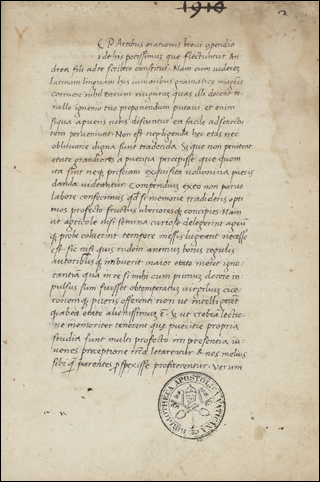 1916
2
E P Artibus orationis breui cpendio
de his potissimum que flectuntur An
drea fili ad te scribere constitui. Nam cum uiderem
latinam linguam his iunioribus gramatice magistris
corruere nihil earum nugarum quas illi docent te
nello ignenio tuo preponendum putaui et enim
siqua a pueris nobis discuntur ea facile ad senectu
tem perueniunt. Non est negligenda hec etas nec
obliuione digna sunt tradenda. Si que non penitent
etate grandiores a pueritia percepisse que quom
ita sint neque prisciani exquisita uolumina pueris
danda uideantur Compendium exeo non paruo
labore confecimus quod si memorie tradideris opti
mos profecto fructus uberioresque concipies. Nam
ut agricole nisi semina cureque delegerint agrum
que probe coluerint tempore messis lugeant necesse
est sic nisi quis rudem animum bonis regulis
autoribusque imbuerit maior etate meret igno
rantiam qua in re si mihi cum primum docere im
pulsus sum fuisset obtemperatum uirgilium cice
ronemque pueris offerenti non ut intelligerent
que ab ea etate alienissimum est Sed ut crebra lectio
ne memoriter tenerent que pueritie propria
studia sunt multi profecto in presentia iu
uenes preceptione mea letarentur & nos melius
sibi quam parentes prospexisse profiterentur. Verum
BIBLIOTHECA APOSTOLICA VATICANA